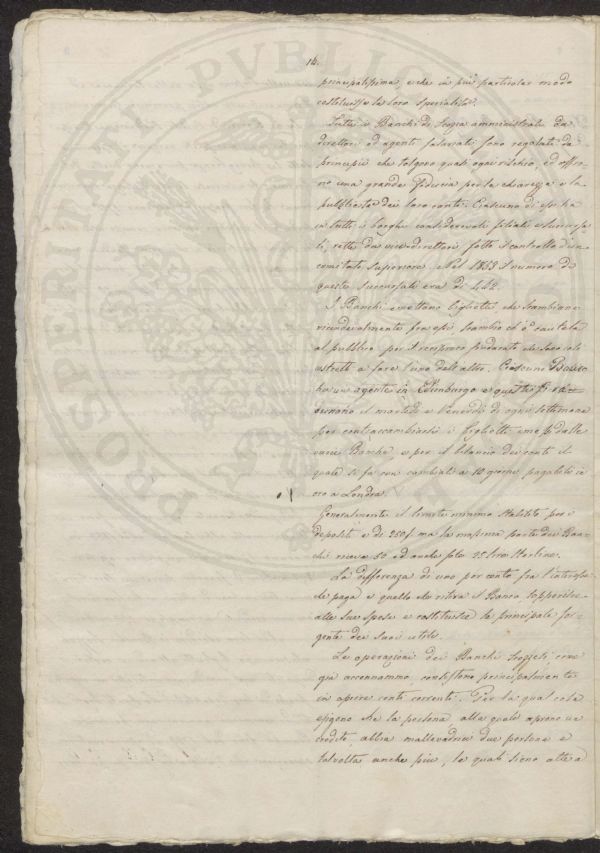 14.
principalissima, e che in più particolar modo
costituisse la loro specialità.
Tutti i Banchi di Scozia amministrati da
direttori ed agenti salariati sono regolati da
principii che tolgono quasi ogni rischio, ed offro
no una grande fiducia per la chiarezza e la
pubblicità dei loro conti. Ciascuno di essi ha
in tutti i borghi considerevoli filiali e succursa
li, rette da vice-direttori sotto il controllo d'un
comitato superiore. Nel 1853 il numero di
queste succursali era di 442.
I Banchi emettono biglietti che scambiano
vicendevolmente fra essi
al pubblico per il reciproco che sono essi
astretti a fare l'uno dell'altro. Ciascuno Banco
ha un agente in Edinburgo e questi si
il martedì e Venerdì di ogni settimana
per contraccambiarsi i biglietti emessi dalle
varie Banche, e per il bilancio dei conti il
quale si fa con cambiali a 10 giorni pagabili in
oro a Londra.
Generalmente il limite minimo stabilito per i
depositi è di 250f ma la massima parte dei Ban-
chi riceve 50 ed anche solo 25 lire sterline.
La differenza di uno per cento fra l'interesse
che paga e quello che ritira il Banco sopperisce
alle sue spese e costituisce la principale sor-
gente dei suoi utili.
Le operazioni dei Banchi Scozzesi, come
già accennammo, consistono principalmente
in aprire conti correnti. Per la qual cosa
esigono che la persona, alla quale aprono un
credito, abbia mallevadrici due persone e
talvolta anche più, le quali sieno atte a
PROSPERITATI PVBLICAE